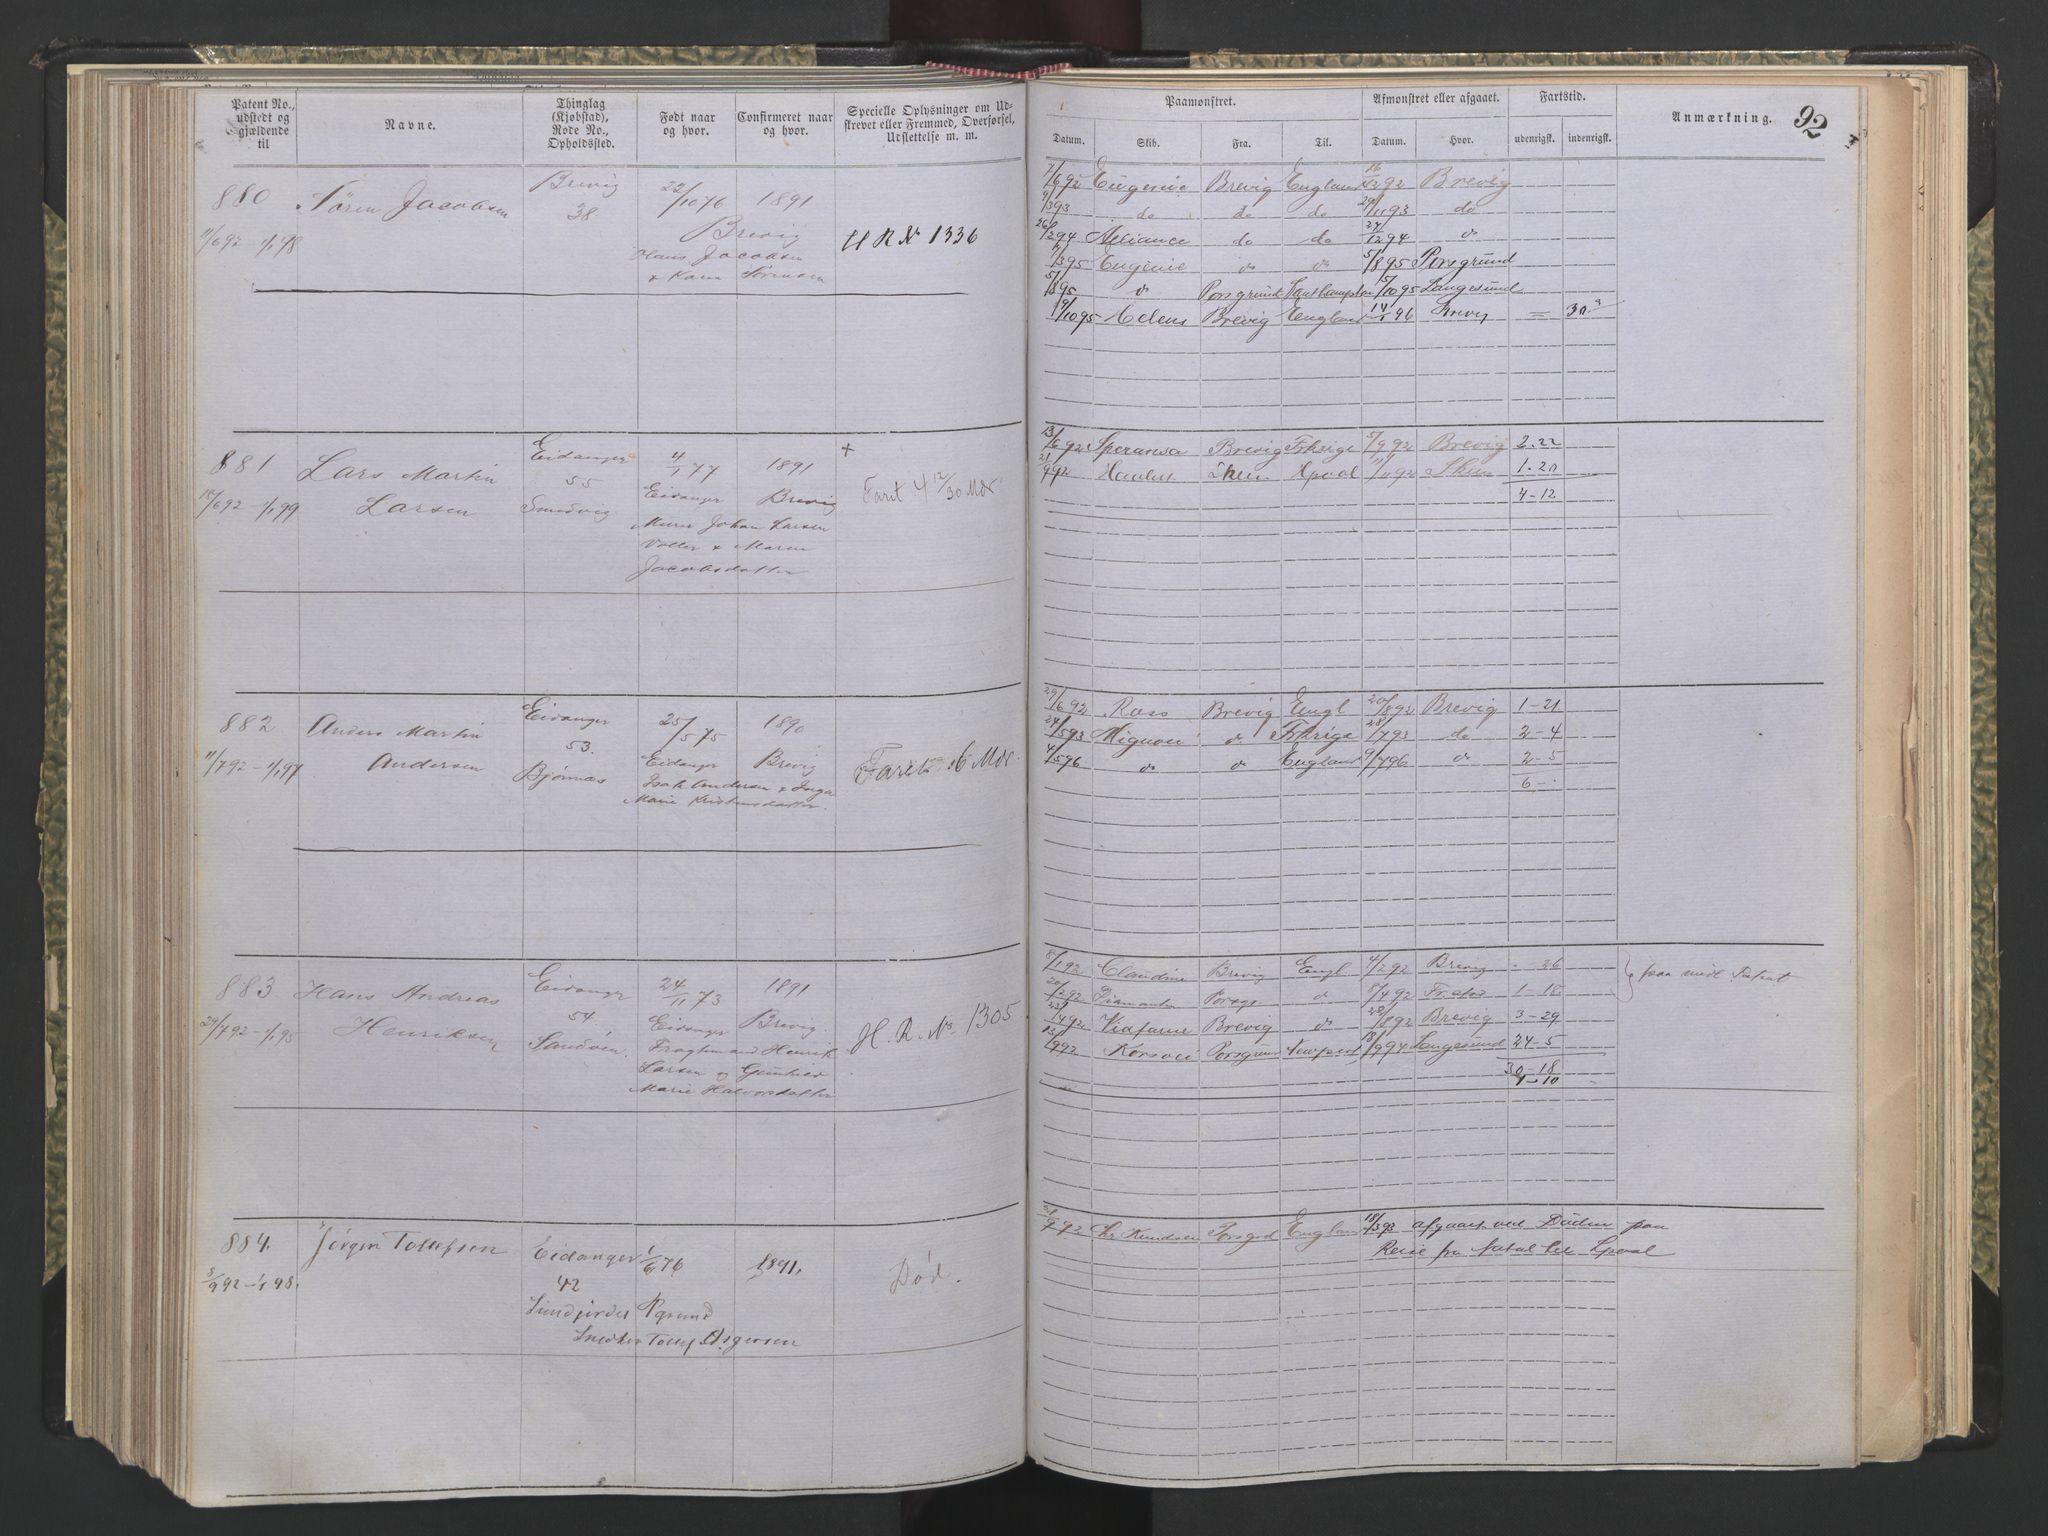 Patent No., udstedt og gjældende til
Navne.
Thinglag (Kjøbstad), Rode No., Opholdssted.
Født naar og hvor.
Confirmeret naar og hvor.
Specielle Oplysninger om Udstrevet eller Fremmed, Overførsel, Udslettelse m. m.
Paamønstret.
Afmønstret eller afgaaet.
Fartstid.
Anmærkning.
92
Datum. Skib. Fra. Til. Datum. Hvor. udenrigsk. indenrigsk.
880 Søren Jacobsen Brevig 22/10 76 1891
11/6 92 - 1/1 98 38 Brevig H R No 1336
Hans Jacobsen
& Karen Sørensen
7/6 92 Eugenie Brevig England 92 Brevig
9/3 93 do do do 29/11 93 do
26/2 94 Alliance do do 27/12 94 do
7/3 95 Eugenie do do 5/8 95 Porsgrund
5/8 95 do Porsgrund Southampton 5/10 95 Langesund
9/10 95 Brevig England 14/1 96 Brevig
881 Lars Martin Eidanger 4/1 77 1891 +
18/6 92 - 1/1 99 Larsen 55 Eidanger Brevig Farit 4 12/30 Mdr
Murer Johan Larsen
Valler & Maren
Jacobsdatter
13/6 92 Speransa Brevig 5/9 92 Brevig 2-22
21/9 92 Skien Hpool 11/11 92 Skien 1-20
4-12
882 Anders Martin Eidanger 25/5 75 1890
11/7 92 - 1/1 97 Andersen 53. Eidanger Brevig Faret 6 Mdr.
Bjørnæs Isak Andersen & Inga
Marie Kristensdatter.
29/6 92 Ross Brevig Engl 20/8 92 Brevig 1-21
24/5 93 Mignon do 28/7 93 do 2-4
4/5 96 do do England 9/7 96 do 2-5
6-
883 Hans Andreas Eidanger 24/11 73 1891
29/7 92 - 1/1 95 Henriksen 54 Eidanger Brevig H. R. No 1305
Fragtemand Henrik
Larsen og Gunhild
Marie Halvorsdatter
8/1 92 Claudine Brevig Engl 4/2 92 Brevig - 26 paa midl Patent
20/2 92 Diamanten Porsgr do 5/4 92 1-15
23/4 92 Brevig do 22/8 92 Brevig 3-29
12/9 92 Korsvei Porsgrund Newport 18/9 94 Langesund 24-5
30-18
1-10
884. Jørgen Tollefsen Eidanger 1/6 76 1891.
3/9 92 - 1/1 98. 42 Død.
Pgrund
Snedker Tollef Asgersen
92 Chr Knudsen Porsgrd England 18/3 93 afgaaet ved Døden paa
Reise fra Natal til Lpool